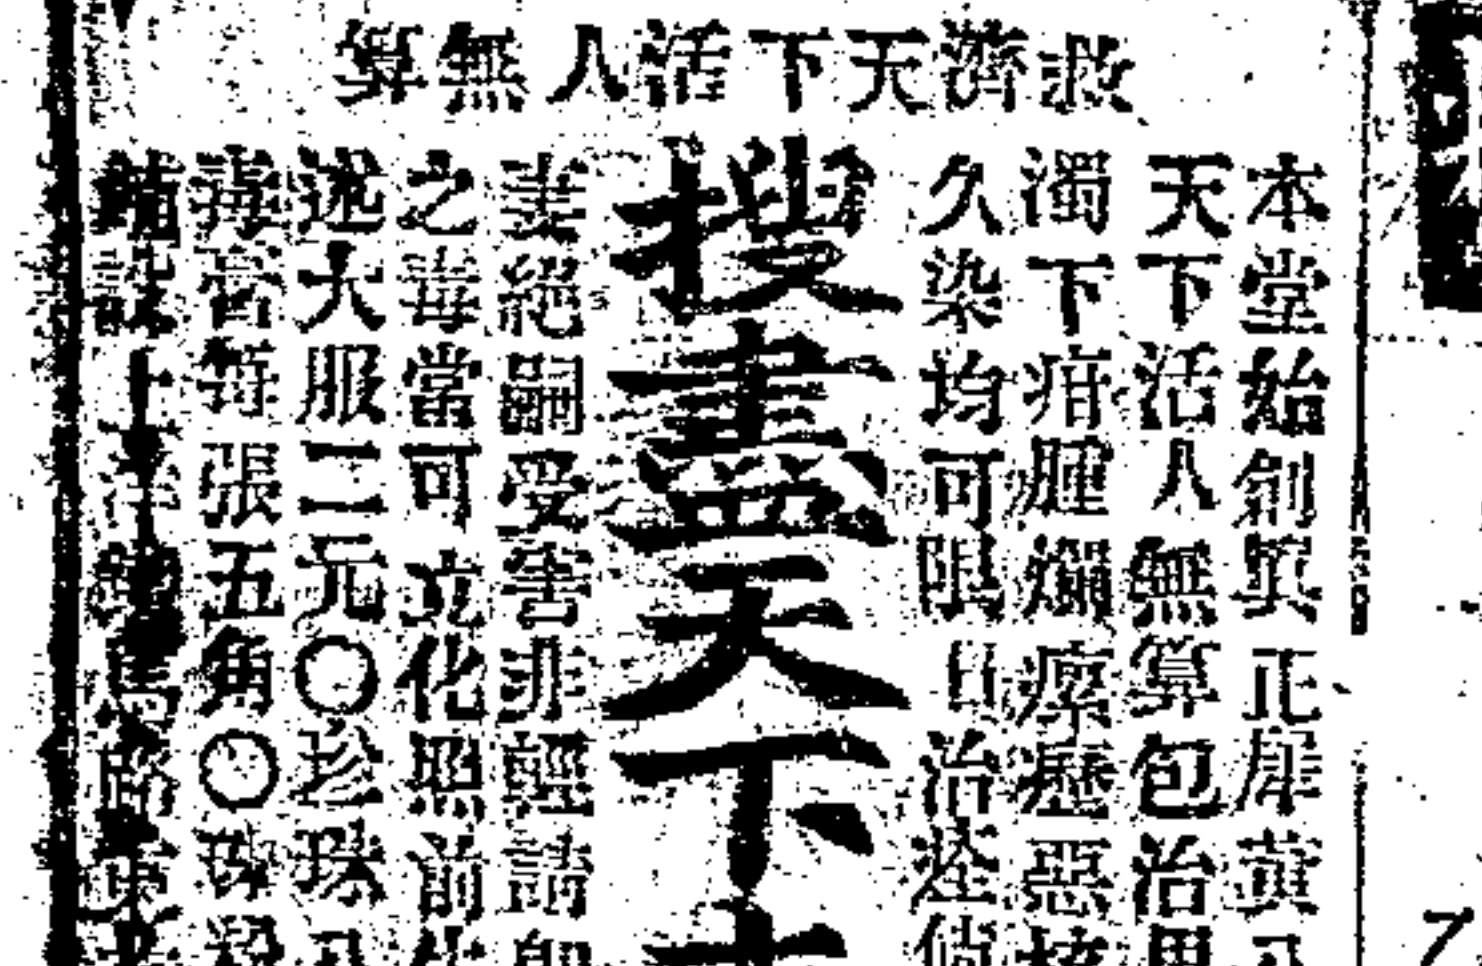 救濟天下活人無算
本堂始創真正犀黃八
天下活人無算包治男
濁下疳腫爛瘰癧惡核
久染均可限日治痊倘
搜盡天下
妻絕嗣受害非輕請即
之毒當可立化照前
述大服二元〇珍珠八
毒膏每張五角〇珠
鋪設上洋馬路東